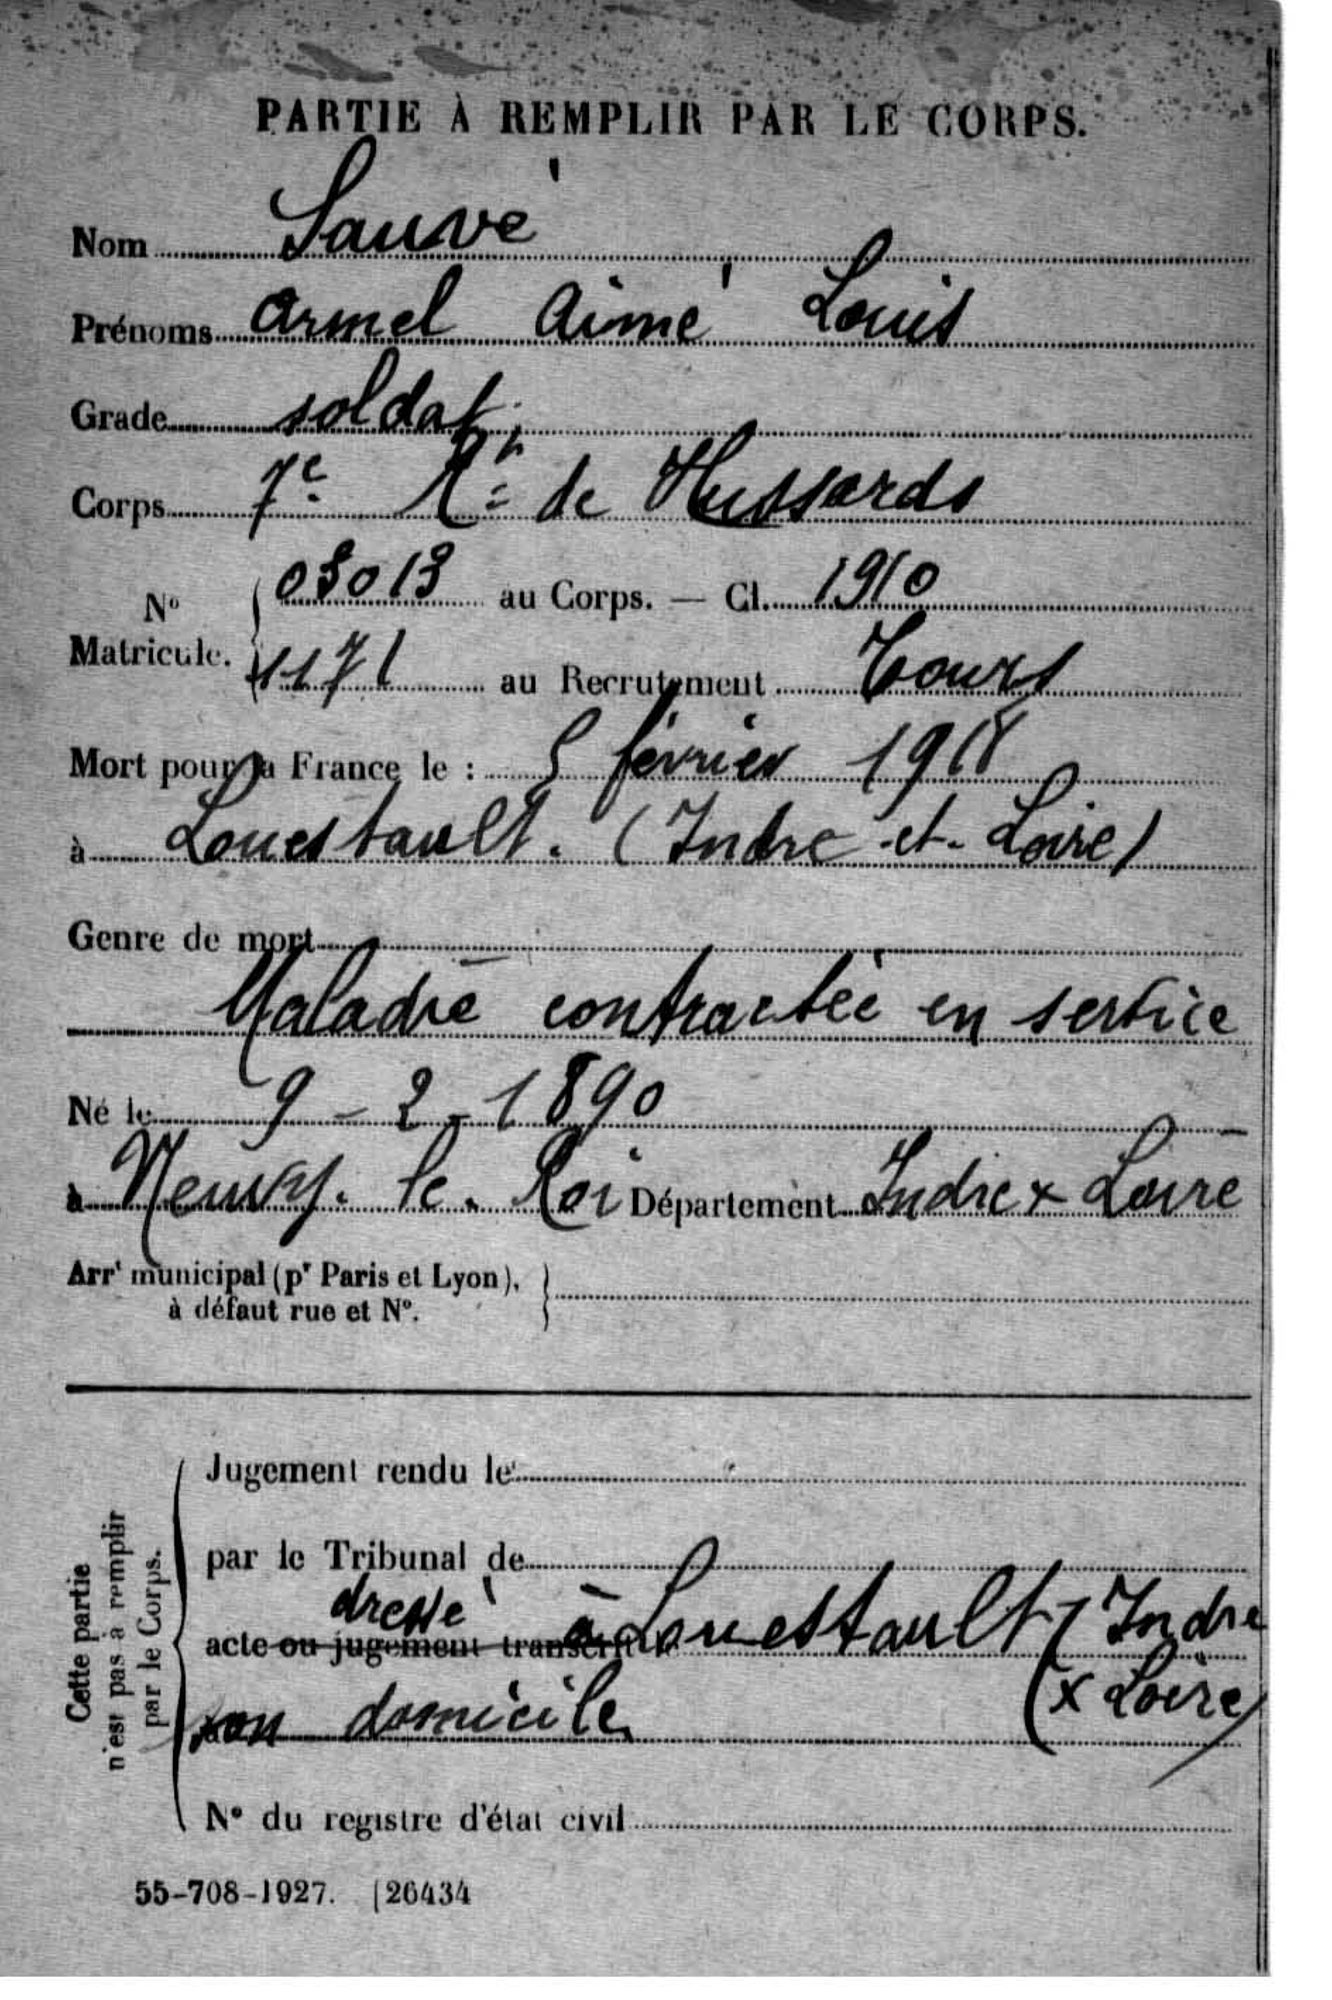 PARTIE À REMPLIR PAR LE CORPS.
Nom Sauvé
Prénoms Armel Aimé Louis
Grade soldat
Corps 7e Rt de Hussards
No Matricule. 03013 au Corps. — Cl. 1910
1171 au Recrutement Tours
Mort pour la France le : 5 février 1918
à Louestault. (Indre-et-Loire)
Genre de mort
Maladie contractée en service
Né le 9-2-1890
à Neuvy-le-Roi Département Indre & Loire
Arrt municipal (pr Paris et Lyon),
à défaut rue et No.
Cette partie
n'est pas à remplir
par le Corps.
Jugement rendu le
par le Tribunal de
dressé
acte ou jugement transcrit le à Louestault (Indre
& Loire)
son domicile
No du registre d'état civil
55-708-1927. [26434